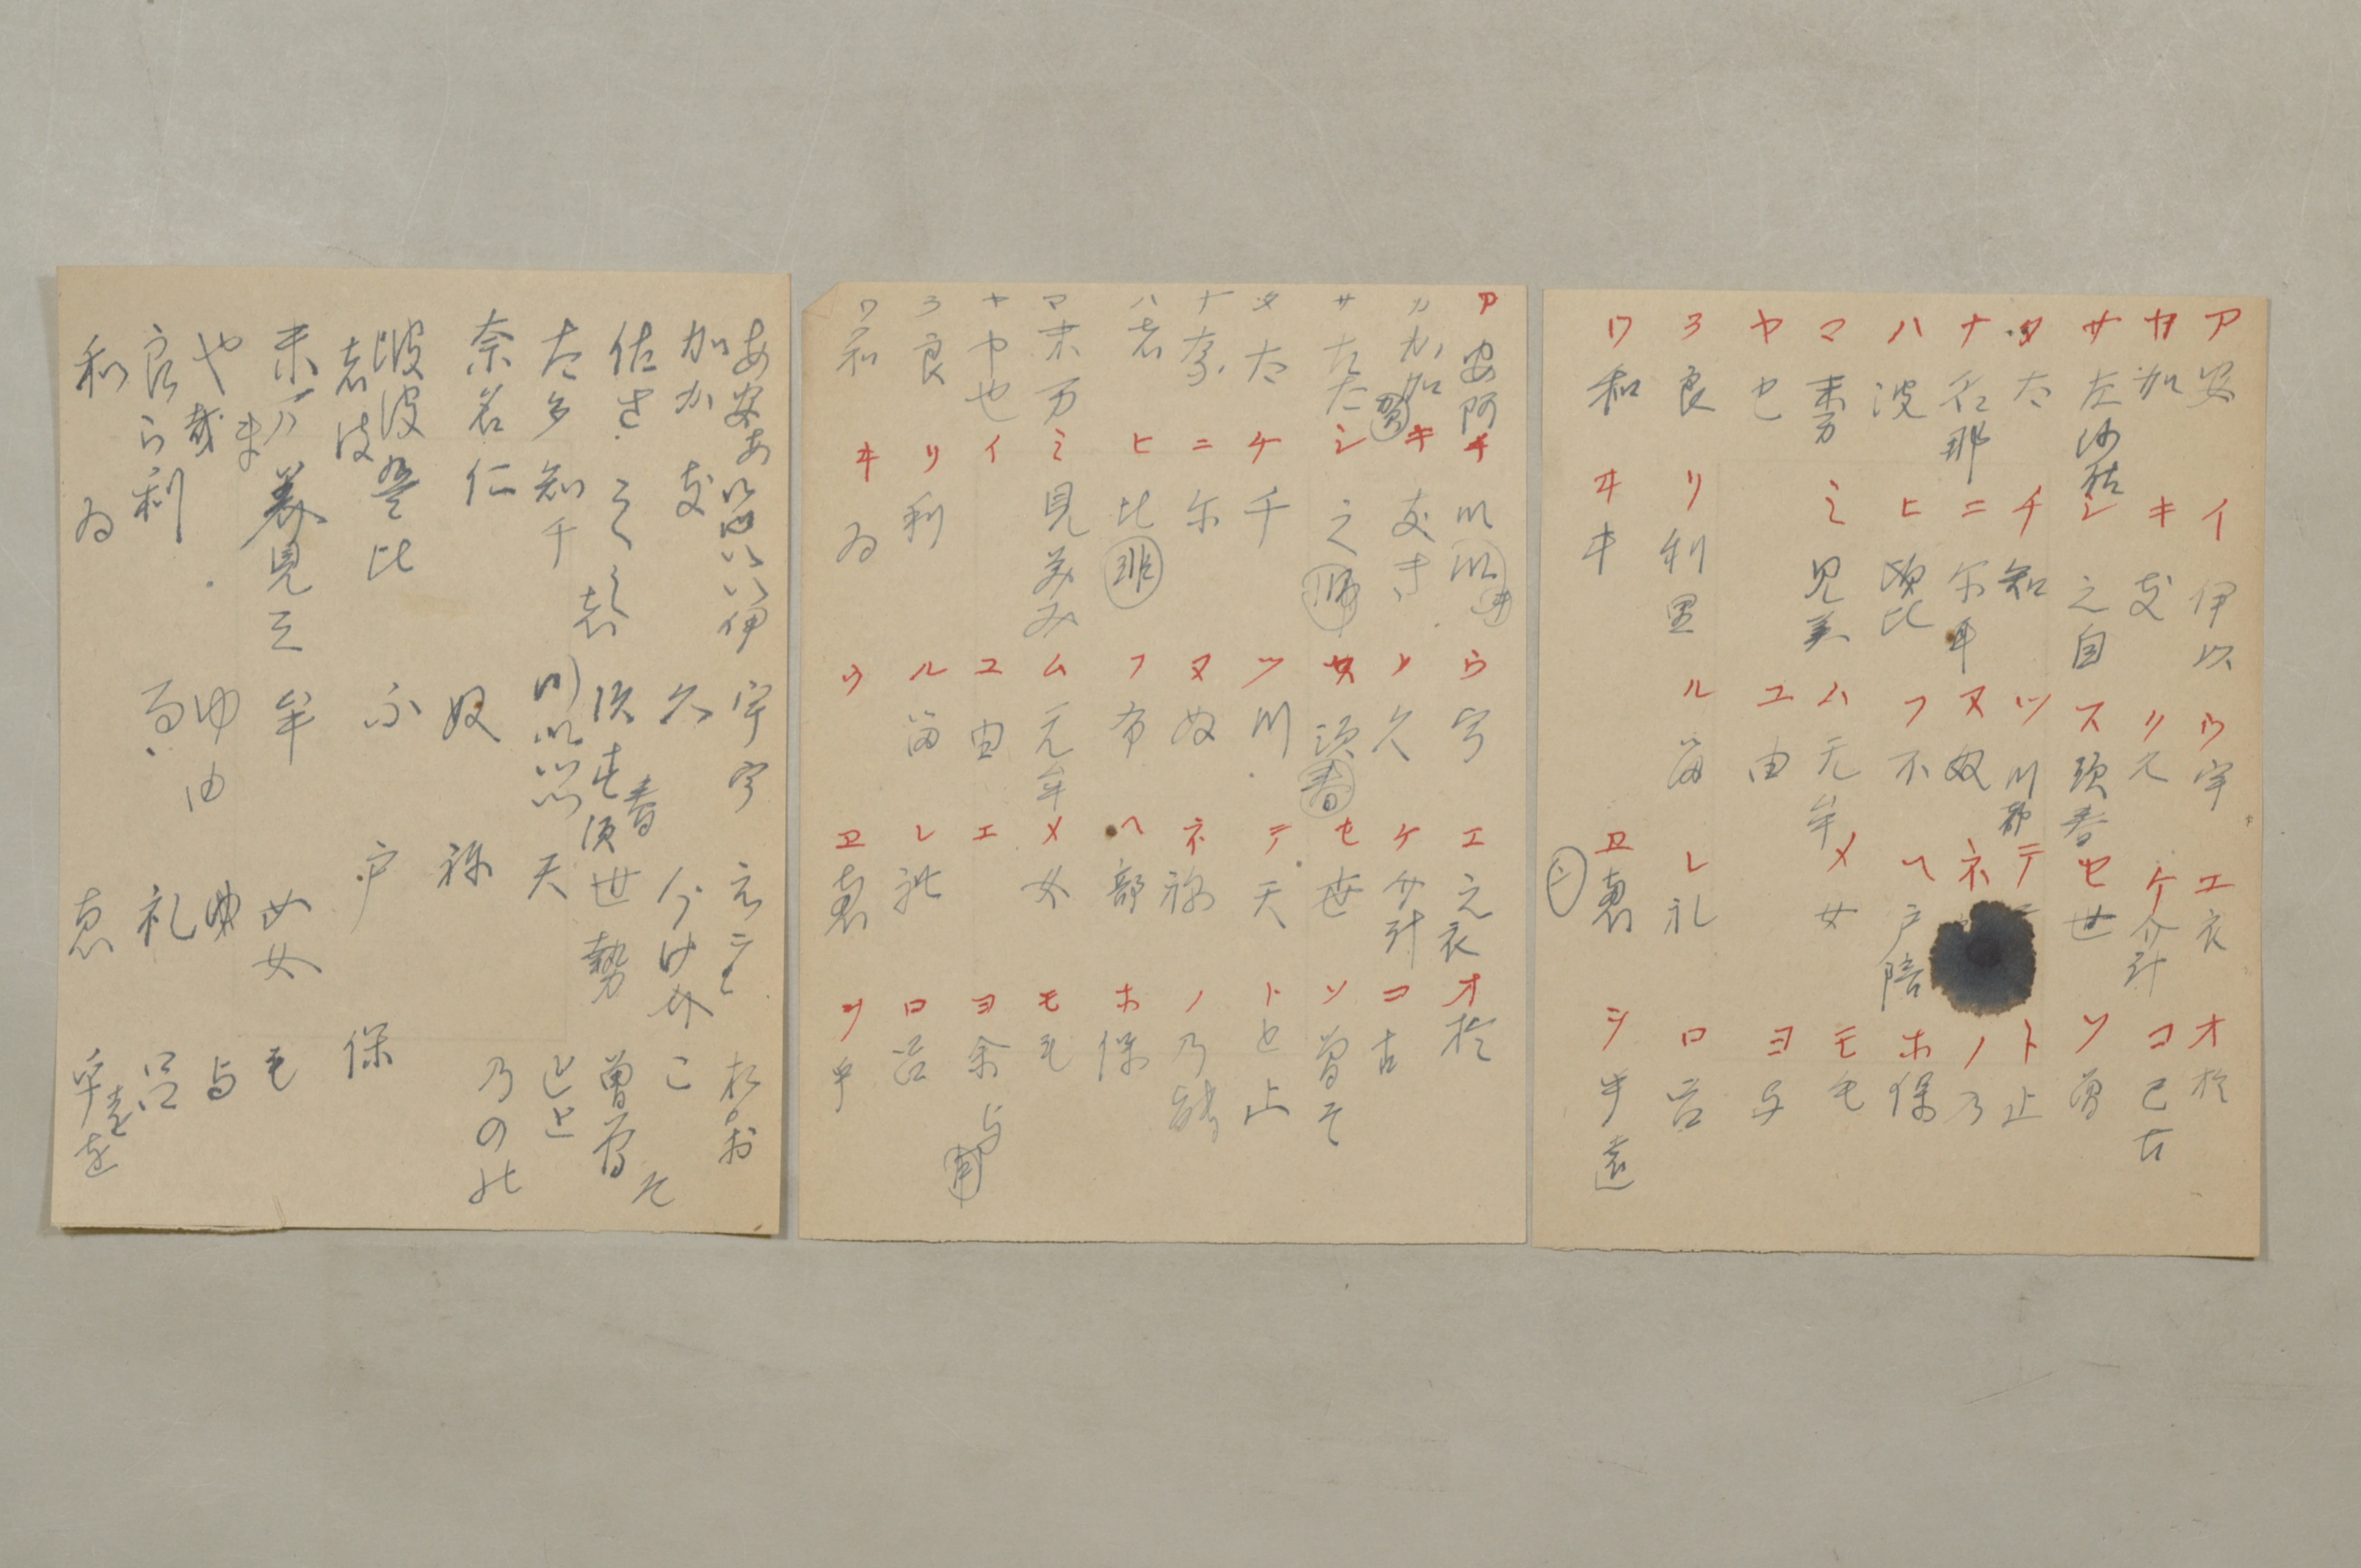 ア安 イ伊以 ウ宇 エ衣 オ於
カ加 キ支 ク久 ケ介計 コ己古
サ左沙佐 シ之自 ス須春 セ世 ソ曽
タ太 チ知 ツ川都 テ ト止
ナ那 ニ尓耳 ヌ奴 ネ ノ乃
ハ波 ヒ比 フ不 ヘ戸陪 ホ保
マ末万 ミ見美 ム无牟 メ女 モ毛
ヤ也 ユ由 ヨ与
ラ良 リ利里 ル留 レ礼 ロ呂
ワ和 ヰ井 ヱ恵 シ乎遠
ア安阿 以以 ウ宇 エ衣 オ於
カ加賀 キ支き ク久 ケ介計 コ古
サ左 シ之 ス須春 セ世 ソ曽そ
タ太 千 ツ川 テ天 トと止
ナ奈 ニ尓 ヌぬ ネ祢 ノ乃能
ハ者 ヒ比非 フ布 ヘ部 ホ保
マ末万 ミ見美み ム无牟 メ女 モ毛
ヤや也 イ ユ由 エ ヨ余与
ラ良 リ利 ル留 レ礼 ロ呂
ワ和 ヰゐ ウ ヱ恵 乎
あ安あ 以以い伊 宇宇 於お
加か 支 久 介け こ
佐さ 之し志 須春須 世勢 曽曽そ
太多 知千 川 天 とと
奈名 仁 奴 祢 乃の
波波者 比 不 戸 保
末万ま 美見三 牟 女 も
や哉 ゆ由 与
良ら 利 る 礼 呂
和 ゐ 恵 乎遠を